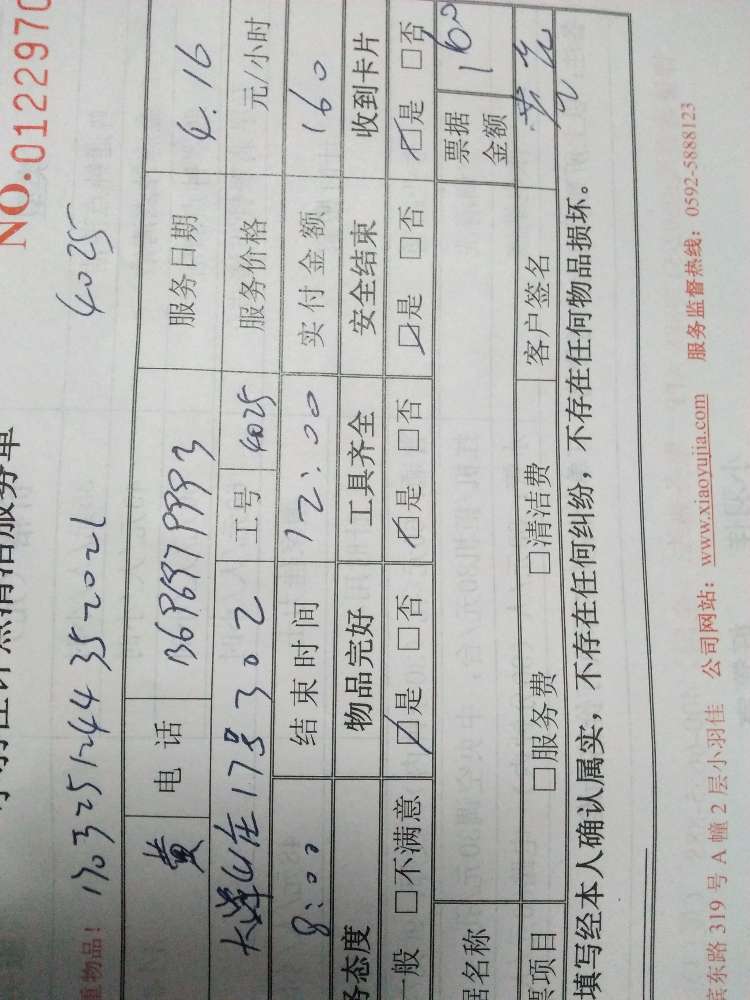 NO.0122970
重物品! 1703251244352021 4025
黄 电话 13696979993 服务日期 4.16
大洋山庄17号302 工号 4025 服务价格 元/小时
8:00 结束时间 12:00 实付金额 160
务态度 物品完好 工具齐全 安全结束 收到卡片
一般 □不满意 □是 □否 □是 □否 □是 □否 □是 □否
据名称 票据金额 160
票项目 □服务费 □清洁费 客户签名
填写经本人确认属实，不存在任何纠纷，不存在任何物品损坏。
宾东路 319 号 A 幢 2 层小羽佳 公司网站：www.xiaoyujia.com 服务监督热线：0592-5888123